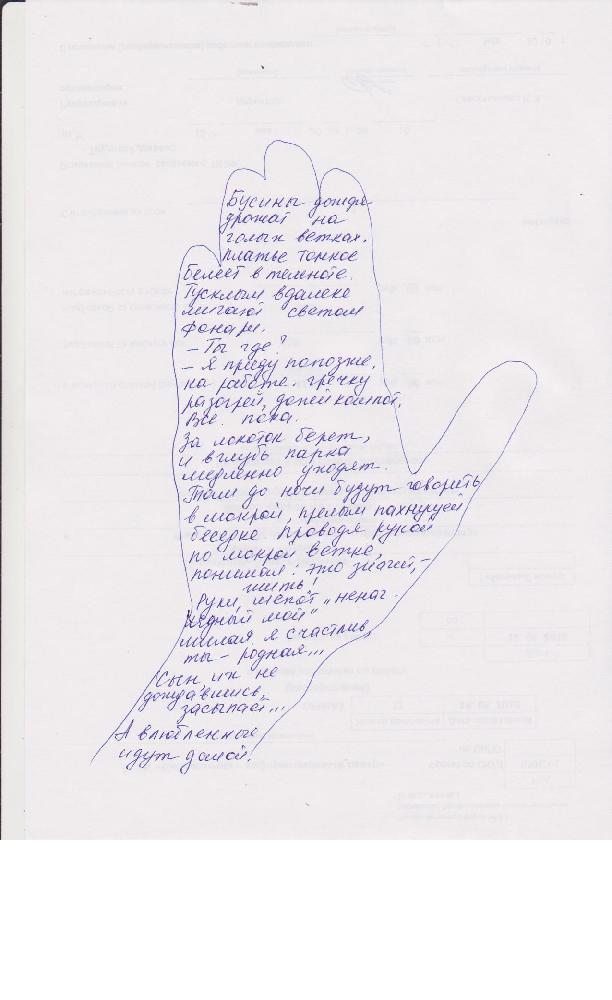 Бусины дождя
дрожат на
голых ветках.
Платье тонкое
белеет в темноте.
Тусклым вдалеке
мигают светом
фонари.
– Ты где?
– Я приду попозже.
на работе. гречку
разогрей, допей компот.
Все. пока.
За локоток берет,
и вглубь парка
медленно уходят.
Там до ночи будут говорить
в мокрой, прелым пахнущей
беседке. Проводя рукой
по мокрой ветке,
понимая: это значит, –
жить!
Руки, шепот, „ненаг-
лядный мой"
милая я счастлив,
ты – родная...
Сын их не
дождавшись,
засыпает...
А влюбленные
идут домой.